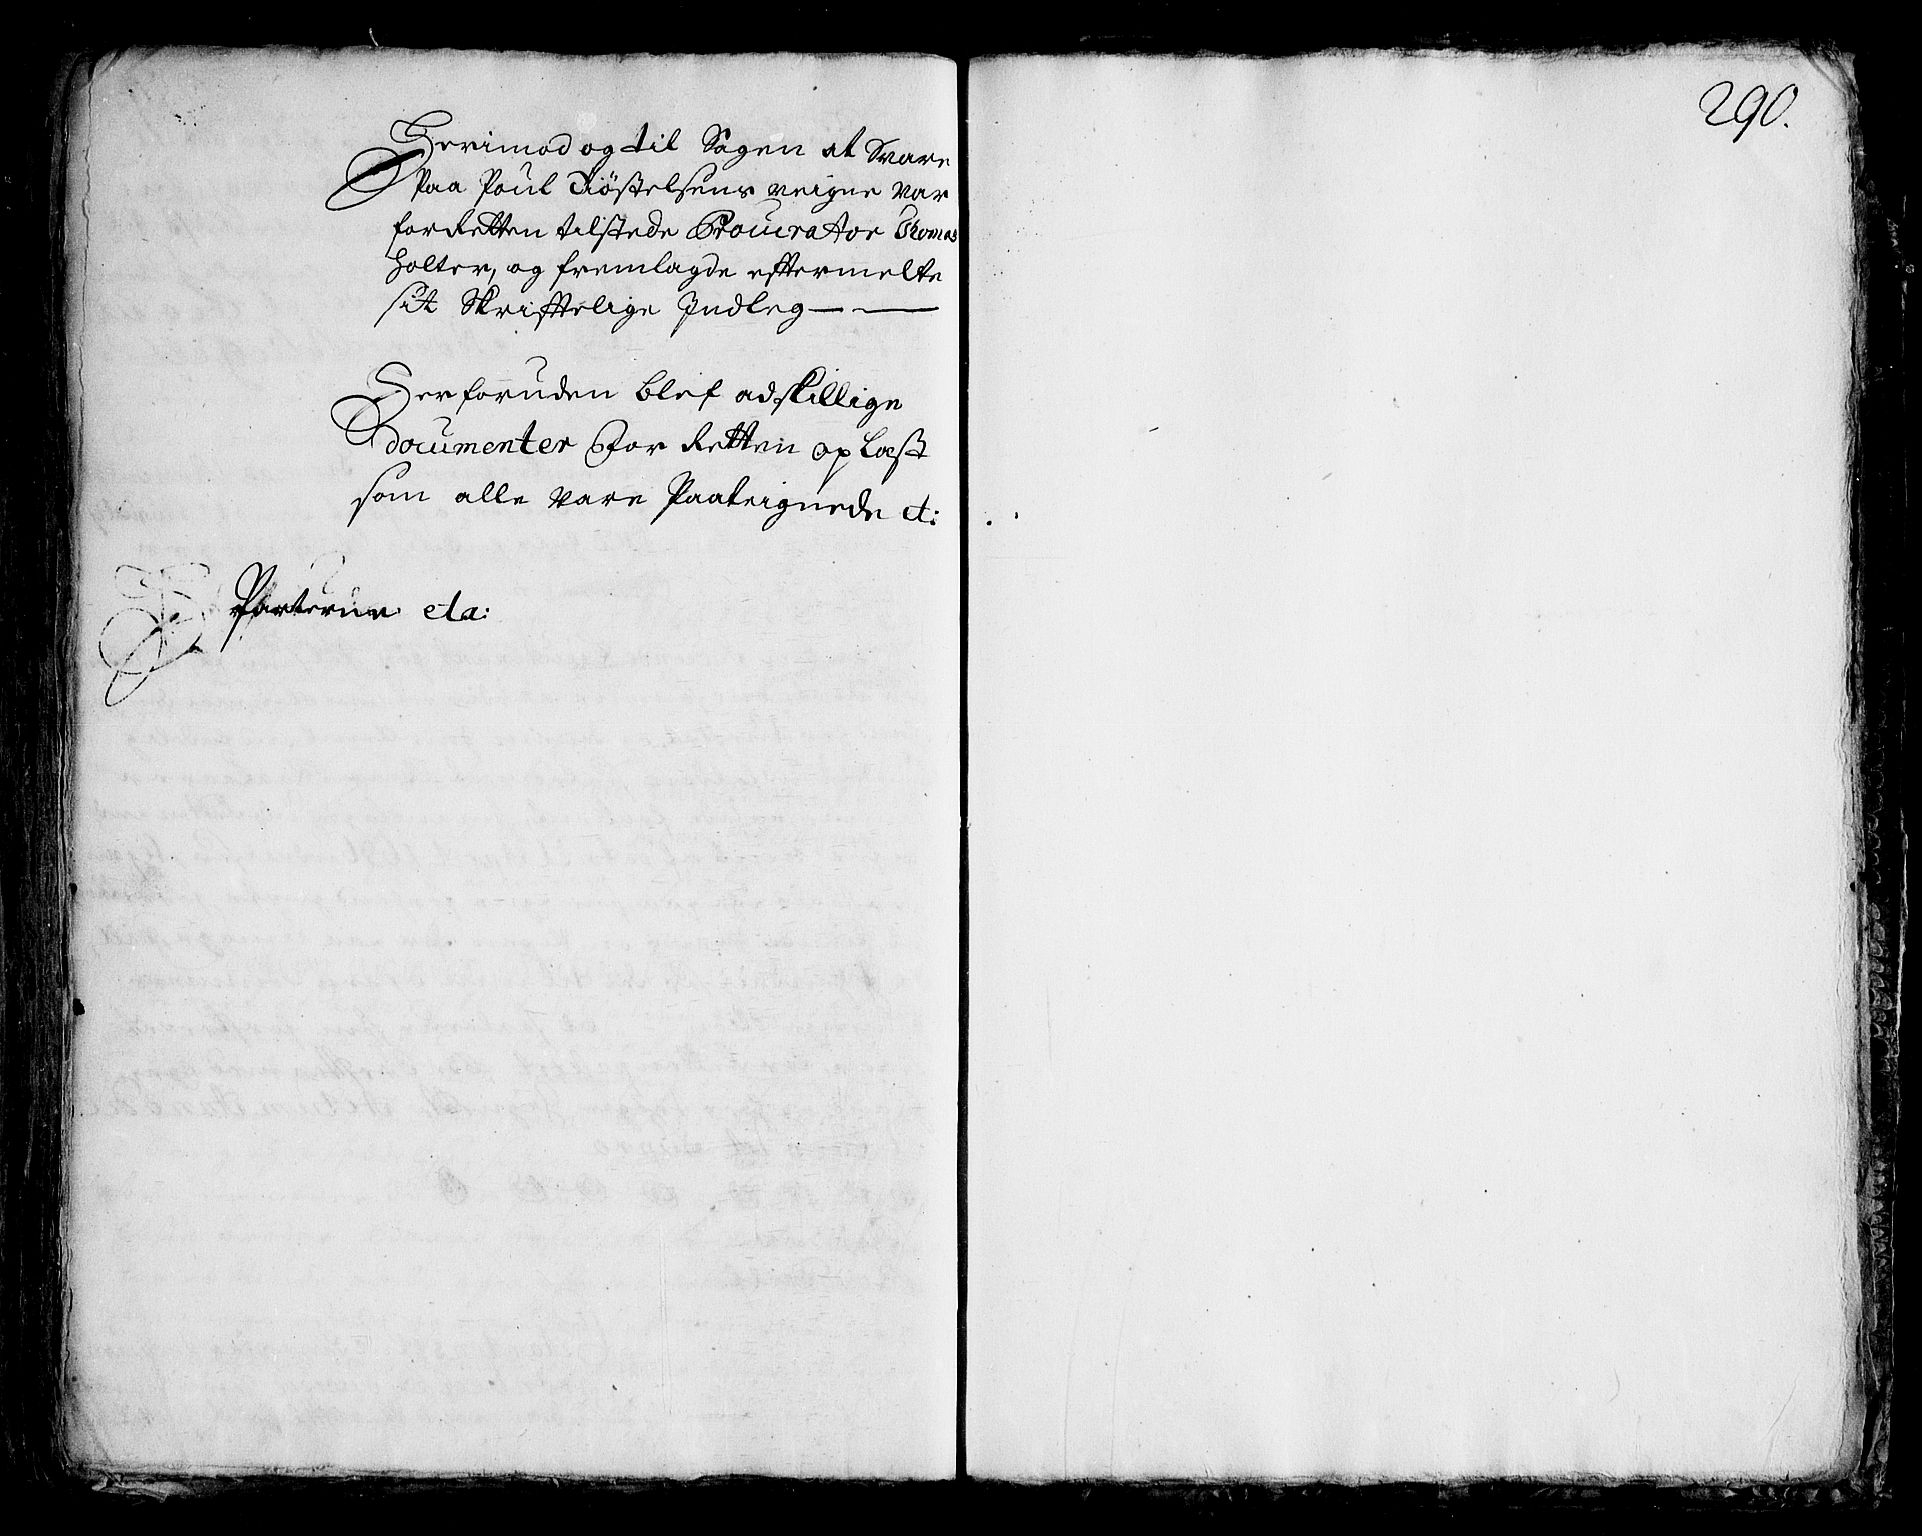 Herimod og til Sagen at Svare
Paa Poul Kiøstelsens veigne var
for Retten tilstede Procurator Thomas
Holter, og fremlagde eftermelte
sit Skriftelige Indleg — —
Herforuden blef adskillige
documenter for Retten oplæst
som alle vare Paateignede et:
Parterne eta:
290.